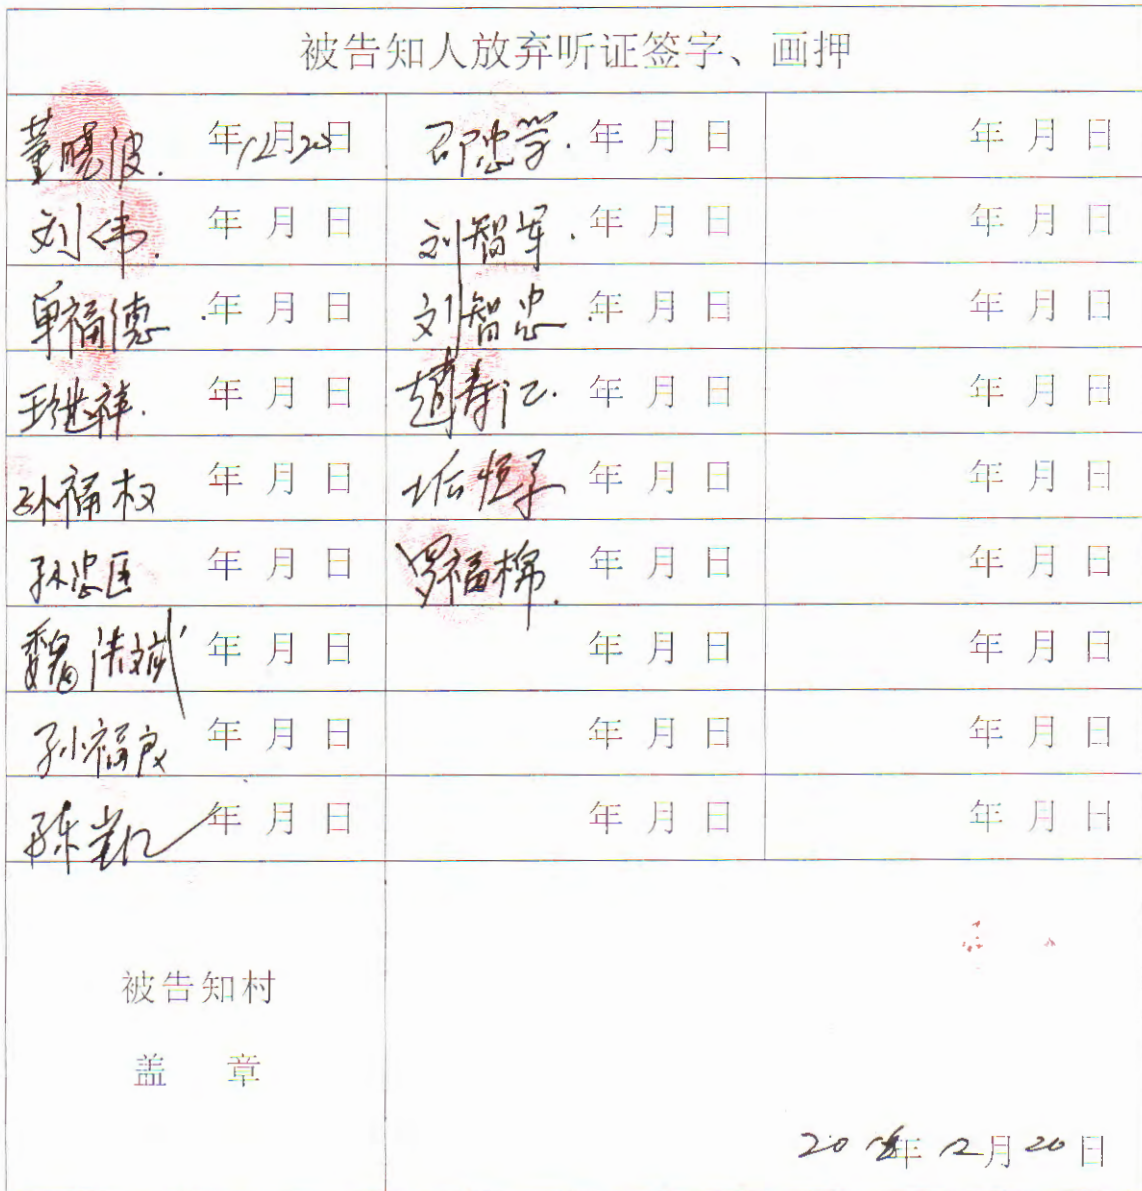 被告知人放弃听证签字、画押
董晓波. 年12月20日 邵忠学. 年 月 日 年 月 日
刘伟. 年 月 日 刘智军. 年 月 日 年 月 日
单福德. 年 月 日 刘智忠. 年 月 日 年 月 日
王继祥. 年 月 日 赵寿江. 年 月 日 年 月 日
孙福权 年 月 日 年 月 日 年 月 日
孙忠匡 年 月 日 罗福棉. 年 月 日 年 月 日
魏洪斌 年 月 日 年 月 日 年 月 日
孙福良 年 月 日 年 月 日 年 月 日
陈凯 年 月 日 年 月 日 年 月 日
被告知村
盖 章
年12月20日